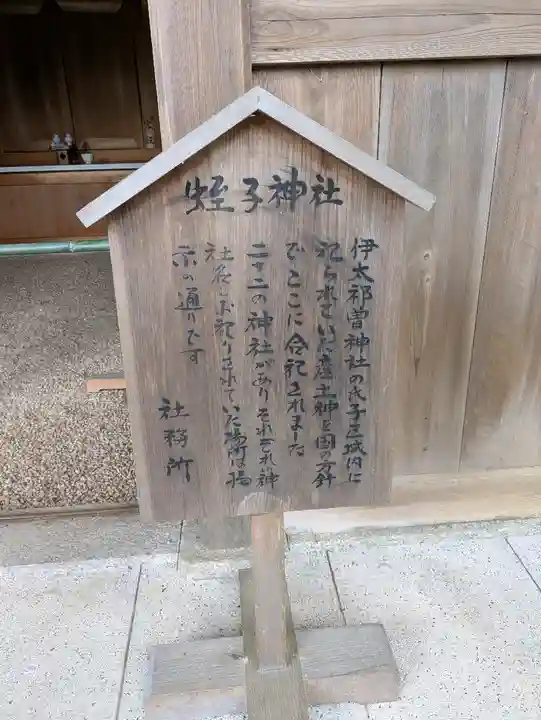 蛭子神社
伊太祁曽神社の氏子区域内に
祀られていた産土神を国の方針
でここに合祀されました
二十二の神社がありそれぞれ神
社名お祀りされていた場所は掲
示の通りです
社務所